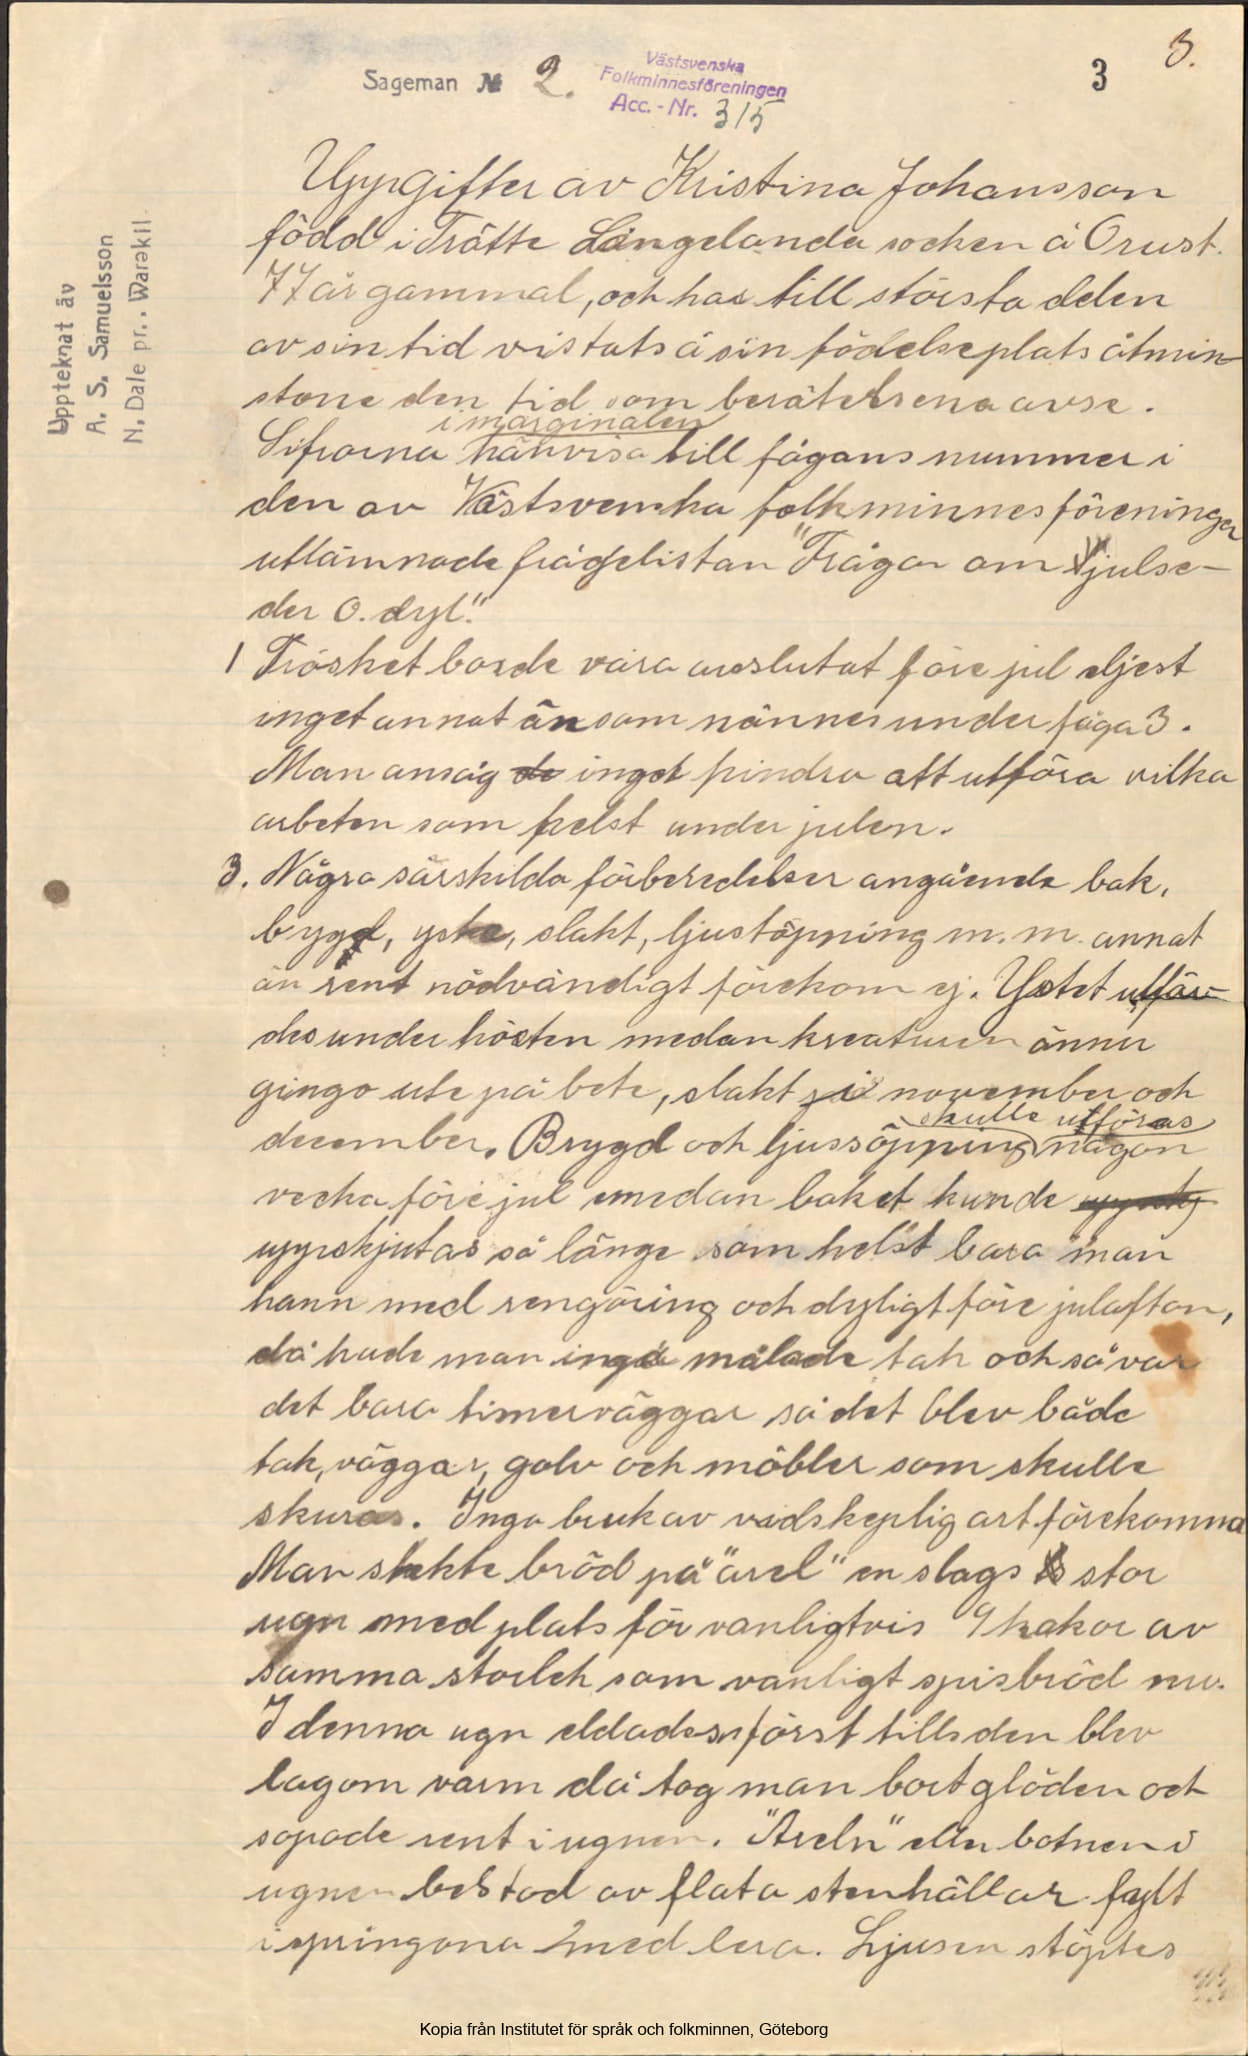 3.
3
Sageman № 2.
Västsvenska
Folkminnesföreningen
Acc. - Nr. 315
Upptecknat äv
A. S. Samuelsson
N. Dale pr. Warekil
Uppgifter av Kristina Johansson
född i Trätte Långelanda socken å Orust.
77 år gammal, och har till största delen
av sin tid vistats å sin födelseplats åtmin-
stone den tid som berätelserna avse.
i marginalen
Sifrorna hänvisa till frågans nummer i
den av Västsvenska folkminnesföreningen
utlämnade frågelistan "Frågor om julse-
der o. dyl."
1 Trösket borde vara avslutat före jul eljest
inget annat än som nännes under fråga 3.
Man ansåg de inget hindra att utföra vilka
arbeten som helst under julen.
3. Några särskilda förberedelser angående bak,
brygd, yste, slakt, ljustöpning m. m. annat
än rent nödvändigt förekom ej. Ystet utför-
des under hösten medan kreaturen ännu
gingo ute på bete, slakt i november och
skulle utföras
december. Brygd och ljussöpning någon
vecka före jul emedan baket kunde
uppskjutas så länge som helst bara man
hann med rengöring och dyligt före julafton,
då hade man inga målade tak och så var
det bara timerväggar så det blev både
tak, väggar, golv och möbler som skulle
skuras. Inga bruk av vidskeplig art förekomma
Man stekte bröd på "arel" en slags stor
ugn med plats för vanligtvis 9 kakor av
samma storlek som vanligt spisbröd nu.
I denna ugn eldades först tills den blev
lagom varm då tog man bort glöden och
sopade rent i ugnen. "Areln" eller botnen i
ugnen bestod av flata stenhällar fylt
i springona med lera. Ljusen stöptes
Kopia från Institutet för språk och folkminnen, Göteborg